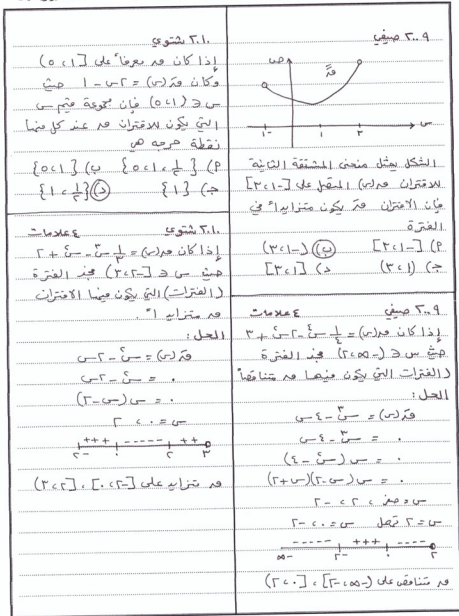 ٢٠٠٩ صيفي
ص
قَّ
س
١-
١
٣
الشكل يمثل منحنى المشتقة الثانية
للاقتران قه(س) المتصل على [-١،٣]
فإن الاقتران قَه يكون متزايداً في
الفترة
٢) [-١،٣] ب) (-١،٣)
جـ) (١،٣) د) [١،٣]
٢٠٠٩ صيفي ٤ علامات
إذا كان قه(س) = ١/٤ س٤ - ٢س٢ + ٣
حيث س ∈ (-∞،٢) جد الفترة
(الفترات التي يكون فيها قه متناقصاً
الحل:
قَه(س) = س٣ - ٤س
٠ = س٣ - ٤س
٠ = س(س٢ - ٤)
٠ = س(س-٢)(س+٢)
س = صفر ، ٢ ، -٢
س = ٢ تهمل س = ٠ ، -٢
---- +++ -----
٢ ٠ ٢- ∞-
قه متناقص على (-∞،-٢] ، [٠،٢)
٢٠١٠ شتوي
إذا كان قه معرفاً على [١،٥)
وكان قَه(س) = ٢س - ١ حيث
س ∈ (١،٥) فإن مجموعة قيم س
التي يكون للاقتران قه عند كل منها
نقطة حرجة هي
٢) {١/٢ ،١،٥} ب) {١،٥}
جـ) {١} د) {١/٢ ،١}
٢٠١٠ شتوي ٤ علامات
إذا كان قه(س) = ١/٣ س٣ - س٢ + ٢
حيث س ∈ [-٢،٣) جد الفترة
(الفترات) التي يكون فيها الاقتران
قه متزايداً.
الحل:
قَه(س) = س٢ - ٢س
٠ = س٢ - ٢س
٠ = س(س-٢)
س = ٠ ، ٢
+++ ----- ++
٣ ٢ ٠ ٢-
قه متزايد على [-٢،٠] ، [٢،٣)